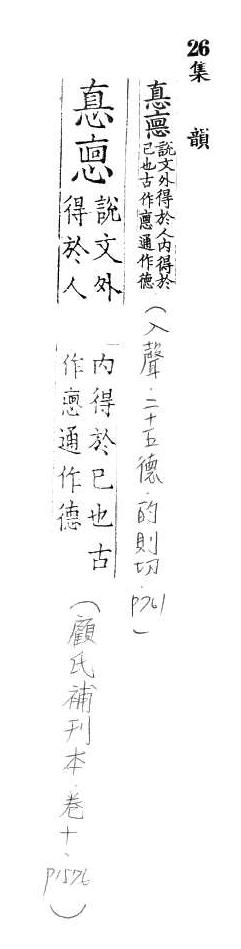 26
集韻
惪悳說文外得於人內得於
己也古作㥁通作德
(入聲.二十五德.的則切.p761)
惪悳說文外
得於人
內得於己也古
作㥁通作德
(顧氏補刊本.卷十.p1576)